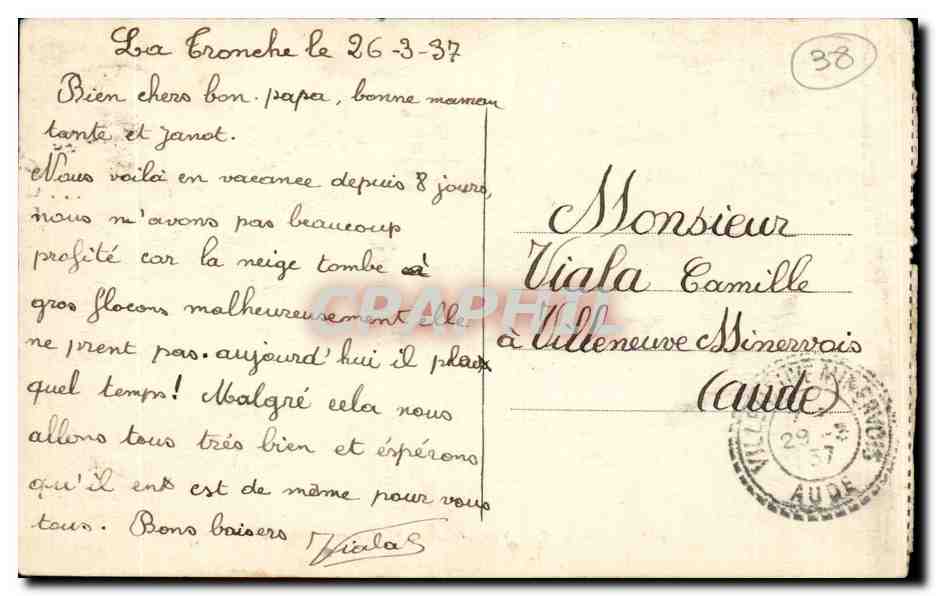 La Tronche le 26-3-37
38
Bien chers bon-papa, bonne maman
tante et Janot.
Nous voilà en vacance depuis 8 jours,
nous n'avons pas beaucoup
profité car la neige tombe à
gros flocons malheureusement elle
ne prent pas. aujourd'hui il pleut
quel temps! Malgré cela nous
allons tous trés bien et éspérons
qu'il en est de même pour vous
tous. Bons baisers
Vialas
Monsieur
Viala Camille
à Villeneuve Minervois
(Aude)
VILLENEUVE-MINERVOIS
29 -3
37
AUDE
CPAPHIL